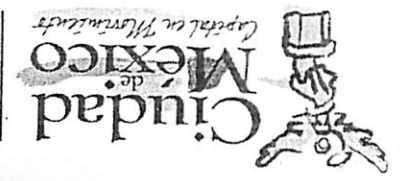 Ciudad
de
México
Capital en Movimiento